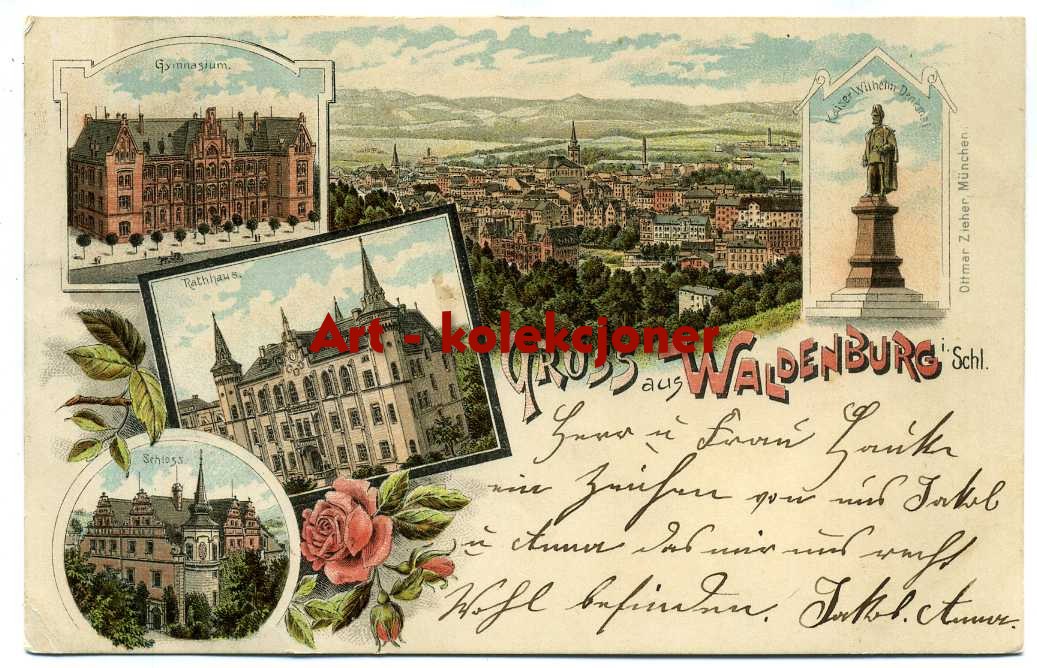 Gymnasium.
Kaiser-Wilhelm-Denkmal
Ottmar Zieher, München.
Rathhaus.
Art - kolekcjoner
GRUSS aus WALDENBURG i. Schl.
Schloss.
Herr u Frau Hauke
ein Zeichen von uns Jakob
u Anna das mir uns recht
Wohl befinden. Jakob. Anna.